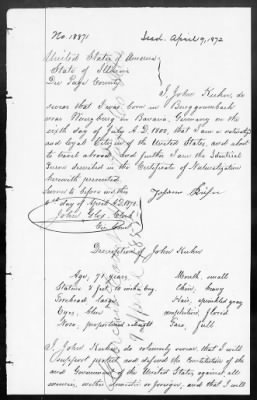 No. 18871 Issd. April 9, 1872
United States of America
State of Illinois
Du Page County
I, John Kuhn, do
swear that I was born in
near in Bavaria, Germany on the
sixth day of July A.D. 1800, that I am a
and loyal Citizen of the United States, and about
to travel abroad, and further I am the Identical
Person described in the Certificate of Naturalization
herewith presented.
Sworn to before me this
day of April A.D. 1872.
John Glos Clerk
Description of John Kuhn
Age, 71 years Mouth, small
Stature 5 feet 10 inches Eng. Chin, heavy
Forehead, large Hair, sprinkled gray
Eyes, blue Complexion, florid
Nose, proportioned straight Face, full
I, John Kuhn, do solemnly swear that I will
support, protect, and defend the Constitution of the
and Government of the United States against all
enemies, whether domestic or foreign, and that I will